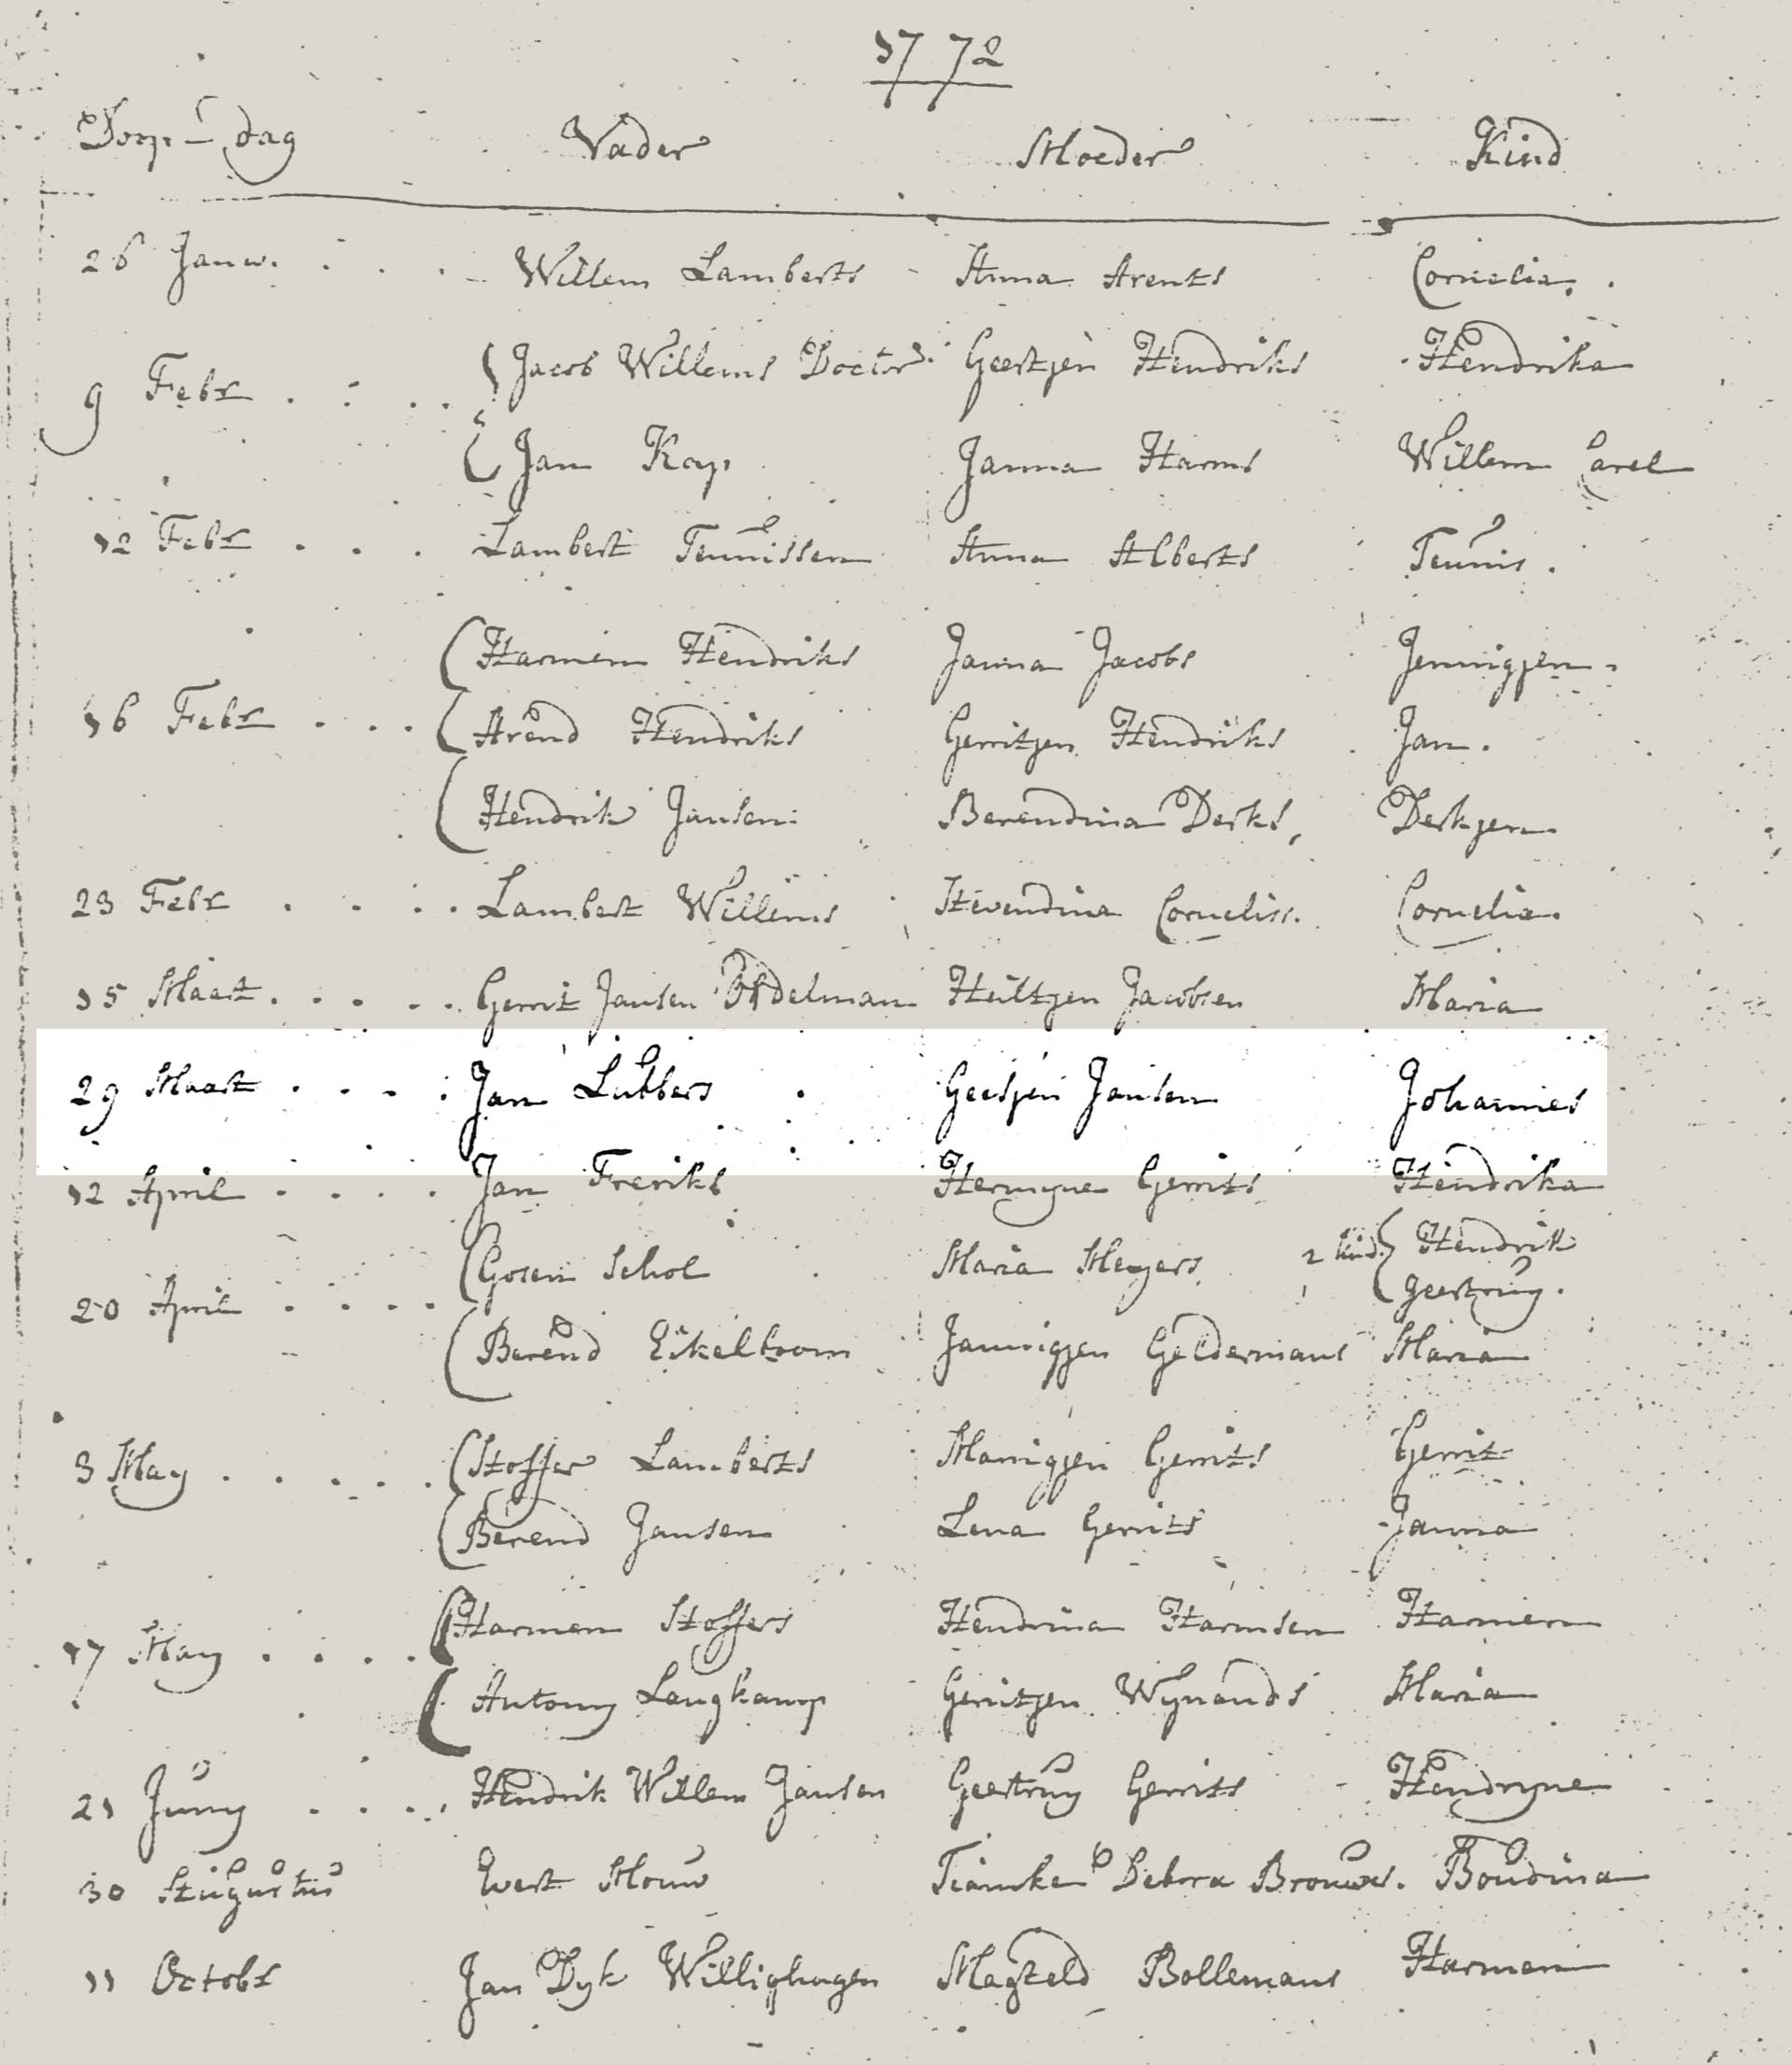 1772
Doop-dag Vader Moeder Kind
26 Janu. Willem Lamberts Anna Arents Cornelia.
9 Febr Jacob Willems Doctor. Geertjen Hendriks Hendrika
Jan Kap Janna Harms Willem Carel
12 Febr Lambert Teunissen Anna Alberts Teunis.
Harmen Hendriks Janna Jacobs Jennigjen.
16 Febr Arend Hendriks Gerritjen Hendriks Jan.
Hendrik Jansen Berendina Derks, Derkjen
23 Febr Lambert Willems Stevendina Corneliss. Cornelia.
15 Maart. Gerrit Jansen Jacobsen Maria
29 Maart Jan Lubbers Geesjen Jansen Johannes
12 April Jan Freriks Hermyne Gerrits Hendrika
Gosen Schol Maria Meyers 2 kind. Hendrik
20 April Geertruy.
Berend Eikelboom Jannigjen Geldermans Maria
3 May Stoffer Lamberts Mannigjen Gerrits Gerrit
Berend Jansen Lena Gerrits Janna
Harmen Stoffers Hendrina Harmsen Harmen
17 May Antony Langkamp Gerritjen Wynands Maria
21 Juny Hendrik Willem Jansen Geertruy Gerrits Hendryne
30 Augustus Evert Mouw Debora Brouwer. Boudina
11 Octobr Jan Dyk Willighagen Magteld Bollemans Harmen